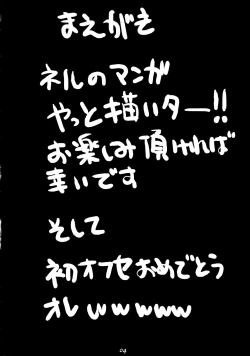 まえがき
ネルのマンガ
やっと描いター!!
お楽しみ頂ければ
幸いです
そして
初オフセおめでとう
オレwwwww
04